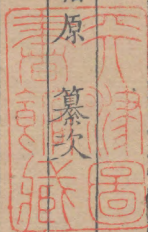 原 纂次
天津圖
書館藏